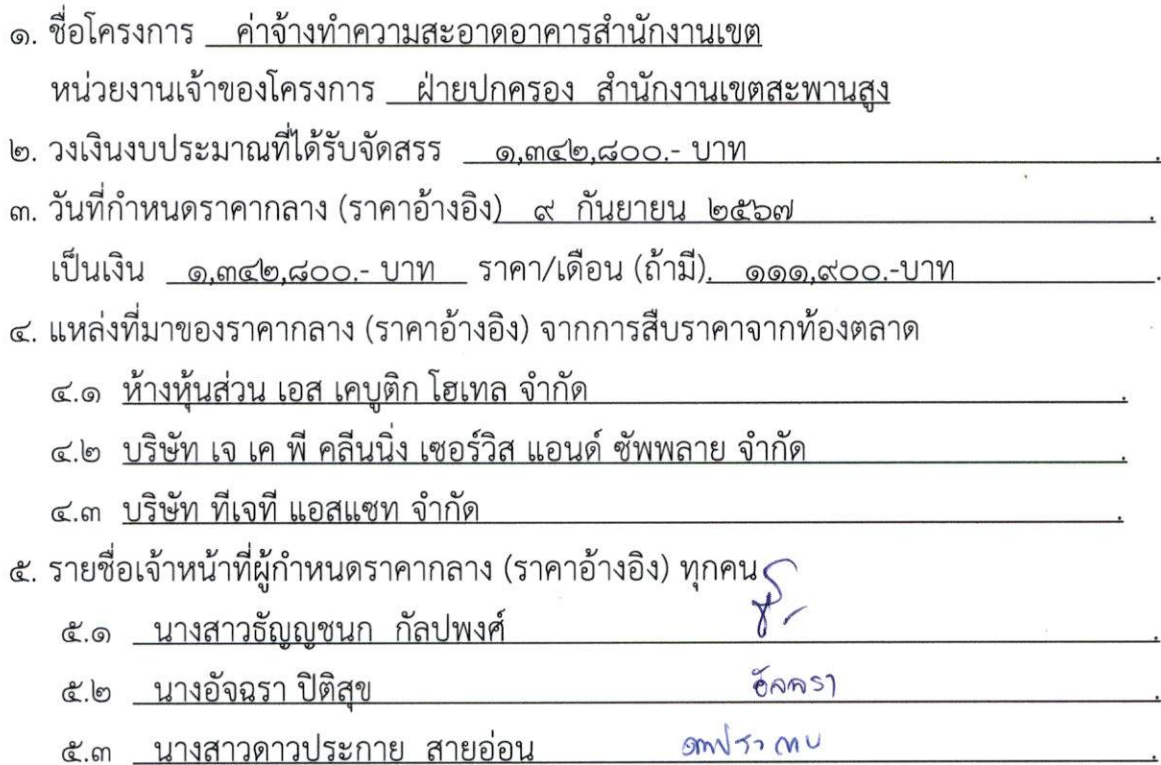 ๑. ชื่อโครงการ ค่าจ้างทำความสะอาดอาคารสำนักงานเขต
หน่วยงานเจ้าของโครงการ ฝ่ายปกครอง สำนักงานเขตสะพานสูง
๒. วงเงินงบประมาณที่ได้รับจัดสรร ๑,๓๔๒,๘๐๐.- บาท .
๓. วันที่กำหนดราคากลาง (ราคาอ้างอิง) ๙ กันยายน ๒๕๖๗ .
เป็นเงิน ๑,๓๔๒,๘๐๐.- บาท ราคา/เดือน (ถ้ามี). ๑๑๑,๙๐๐.-บาท .
๔. แหล่งที่มาของราคากลาง (ราคาอ้างอิง) จากการสืบราคาจากท้องตลาด
๔.๑ ห้างหุ้นส่วน เอส เคบูติก โฮเทล จำกัด .
๔.๒ บริษัท เจ เค พี คลีนนิ่ง เซอร์วิส แอนด์ ซัพพลาย จำกัด .
๔.๓ บริษัท ทีเจที แอสแซท จำกัด .
๕. รายชื่อเจ้าหน้าที่ผู้กำหนดราคากลาง (ราคาอ้างอิง) ทุกคน
๕.๑ นางสาวธัญญชนก กัลปพงศ์ .
๕.๒ นางอัจฉรา ปิติสุข อัจฉรา .
๕.๓ นางสาวดาวประกาย สายอ่อน .